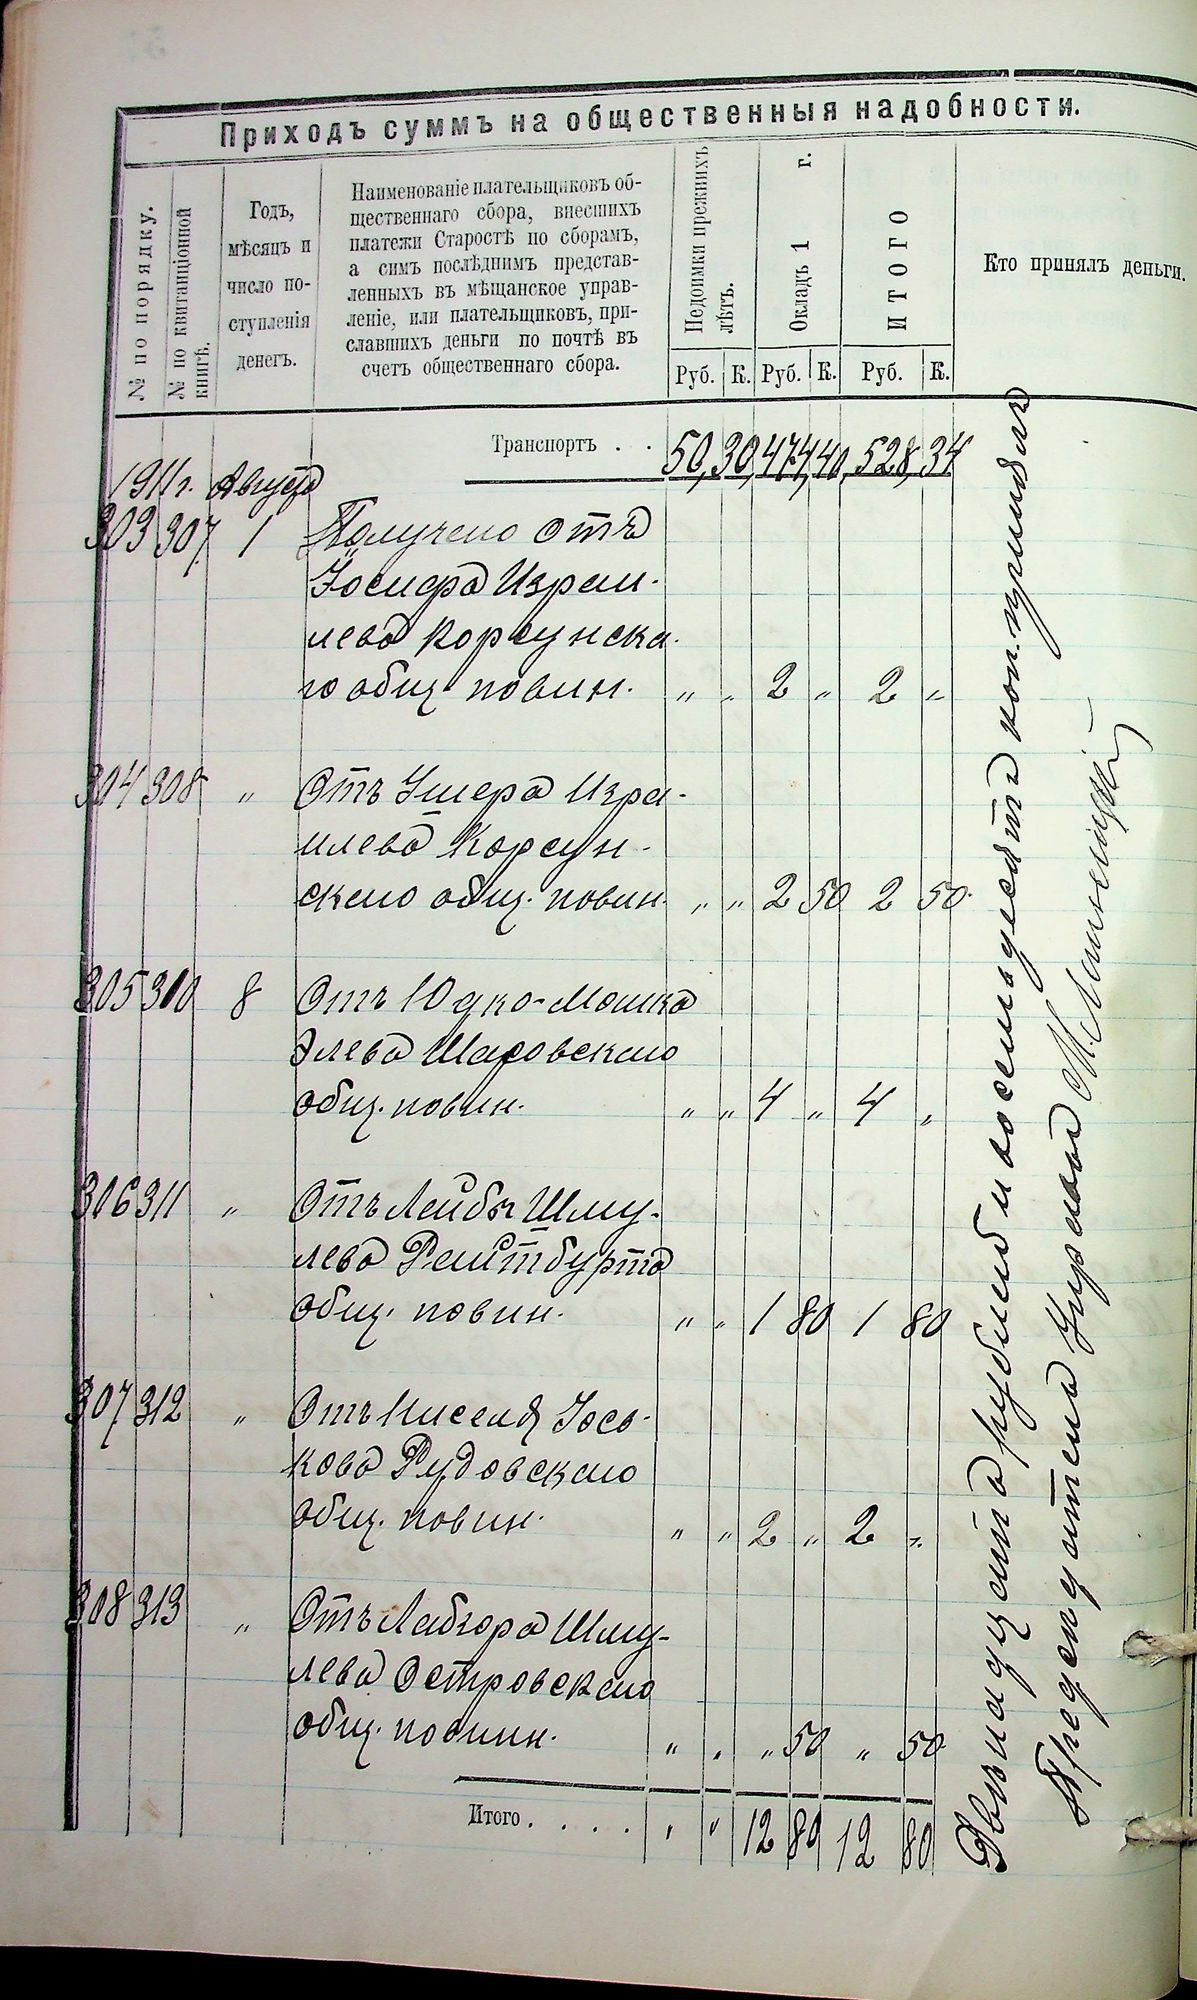 Приходъ суммъ на общественныя надобности.
№ по порядку.
№ по квитанціонной
книгѣ.
Годъ,
мѣсяцъ и
число по-
ступленія
денегъ.
Наименованіе плательщиковъ об-
щественнаго сбора, внесшихъ
платежи Старостѣ по сборамъ,
а симъ послѣднимъ представ-
ленныхъ въ мѣщанское управ-
леніе, или плательщиковъ, при-
славшихъ деньги по почтѣ въ
счетъ общественнаго сбора.
Недоимки прежнихъ
лѣтъ.
Окладъ 1 г.
ИТОГО
Кто принялъ деньги.
Руб. К. Руб. К. Руб. К.
Транспортъ . . 50 30 474 40 528 34
1911 г. Августа
303 307 1 Получено отъ
Іосифа Израи-
лева Корсунска-
го общ. повин. „ „ 2 „ 2 „
304 308 „ Отъ Умера Изра-
илева Корсун-
скаго общ. повин. „ „ 2 50 2 50
305 310 8 Отъ Юдко-Мошка
Элева Шаровскаго
общ. повин. „ „ 4 „ 4 „
306 311 „ Отъ Лейбы Шму-
лева Рейтбурта
общ. повин. „ „ 1 80 1 80
307 312 „ Отъ Киселя Іось-
кова Рудовскаго
общ. повин. „ „ 2 „ 2 „
308 313 „ Отъ Лабзора Шму-
лева Островскаго
общ. повин. „ „ „ 50 „ 50
Итого . . . . „ „ 12 80 12 80
Двѣнадцать рублей и восемьдесятъ коп. принялъ
Предсѣдатель Управы